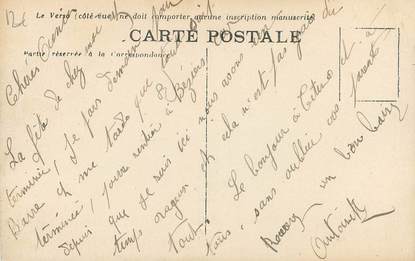 Le Verso (côté vue) ne doit comporter aucune inscription manuscrite
CARTE POSTALE
Partie réservée à la Correspondance
Chères
La fête de chez moi est
terminée, je pars demain pour
Barre et me tarde que
terminée, pour rentrer à Béziers
depuis que je suis ici nous avons un
temps orageux et cela n'est pas gai du
tout.
Le bonjour à toutes et à
tous, sans oublier vos parents
Recevez un bon baiser
Antoinette